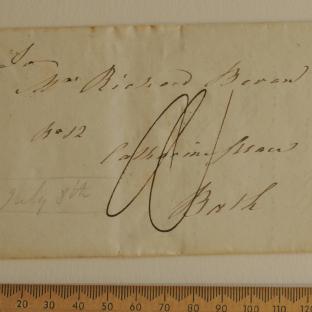 To
Mrs Richard Bevan
No 12
Catharine Place
Bath
July 8th
20 30 40 50 60 70 80 90 100 110 120